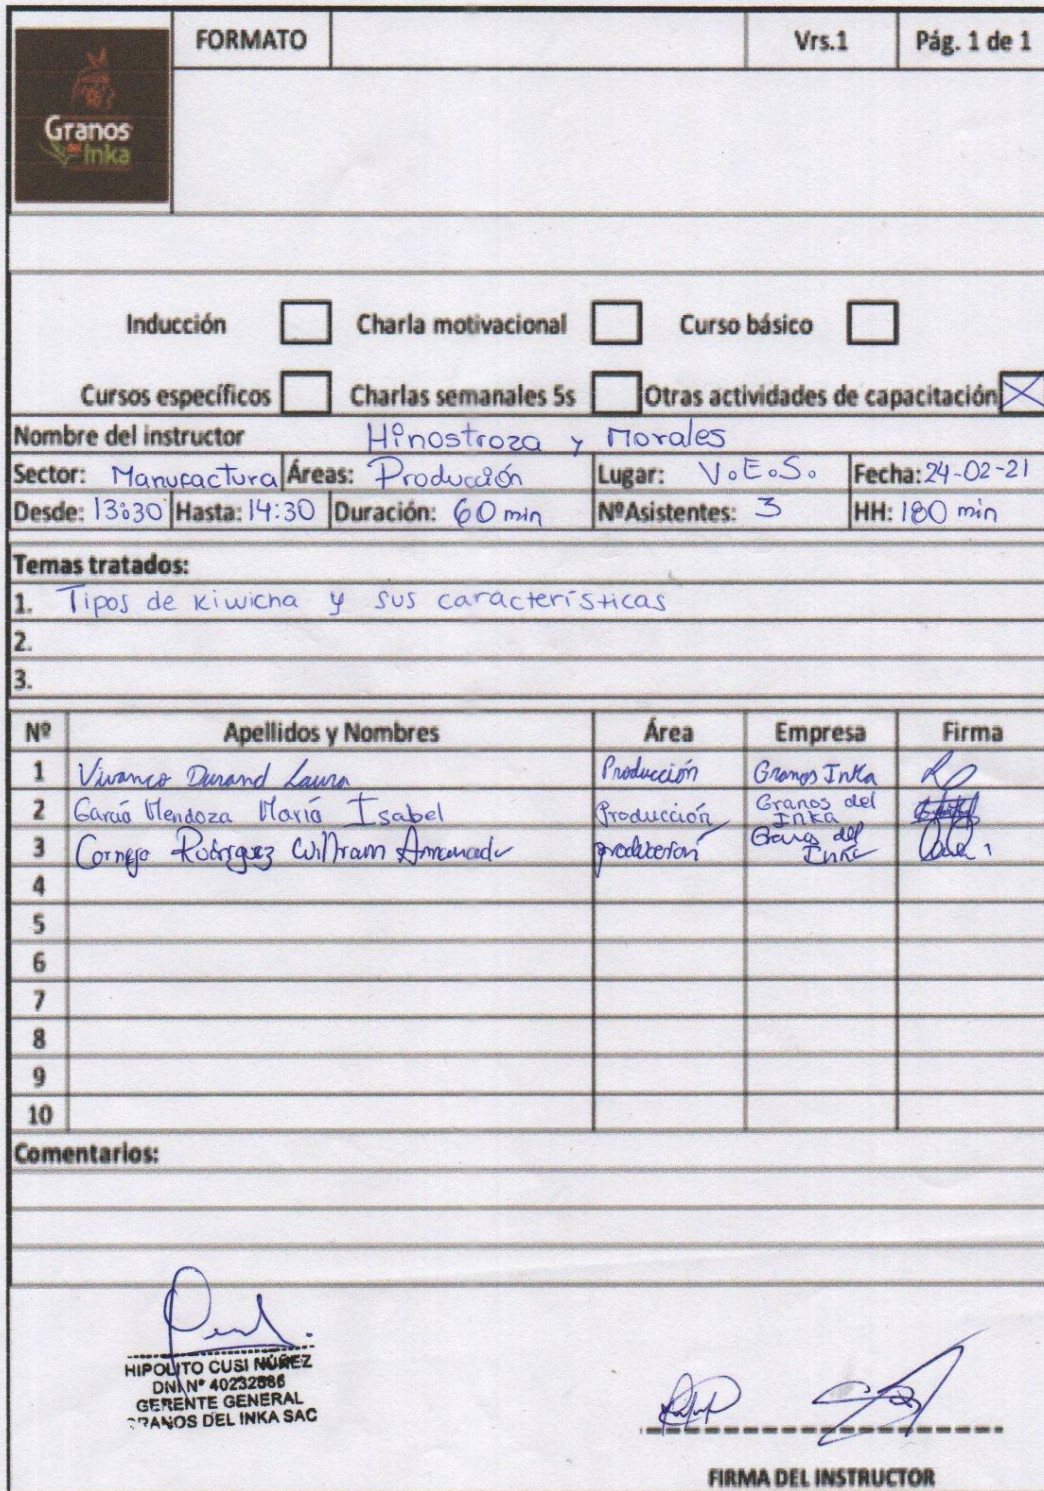 FORMATO Vrs.1 Pág. 1 de 1
Granos
del
Inka
Inducción Charla motivacional Curso básico
Cursos específicos Charlas semanales 5s Otras actividades de capacitación
Nombre del instructor Hinostroza y Morales
Sector: Manufactura Áreas: Producción Lugar: V.E.S. Fecha: 24-02-21
Desde: 13:30 Hasta: 14:30 Duración: 60 min NºAsistentes: 3 HH: 180 min
Temas tratados:
1. Tipos de kiwicha y sus características
2.
3.
Nº Apellidos y Nombres Área Empresa Firma
1 Vivanco Durand Laura Producción Granos Inka
2 Garciá Mendoza Mariá Isabel Producción Granos del Inka
3 Cornejo Rodriguez William producción Granos del Inka
4
5
6
7
8
9
10
Comentarios:
HIPOLITO CUSI NÚÑEZ
DNI Nº 40232886
GERENTE GENERAL
GRANOS DEL INKA SAC
FIRMA DEL INSTRUCTOR